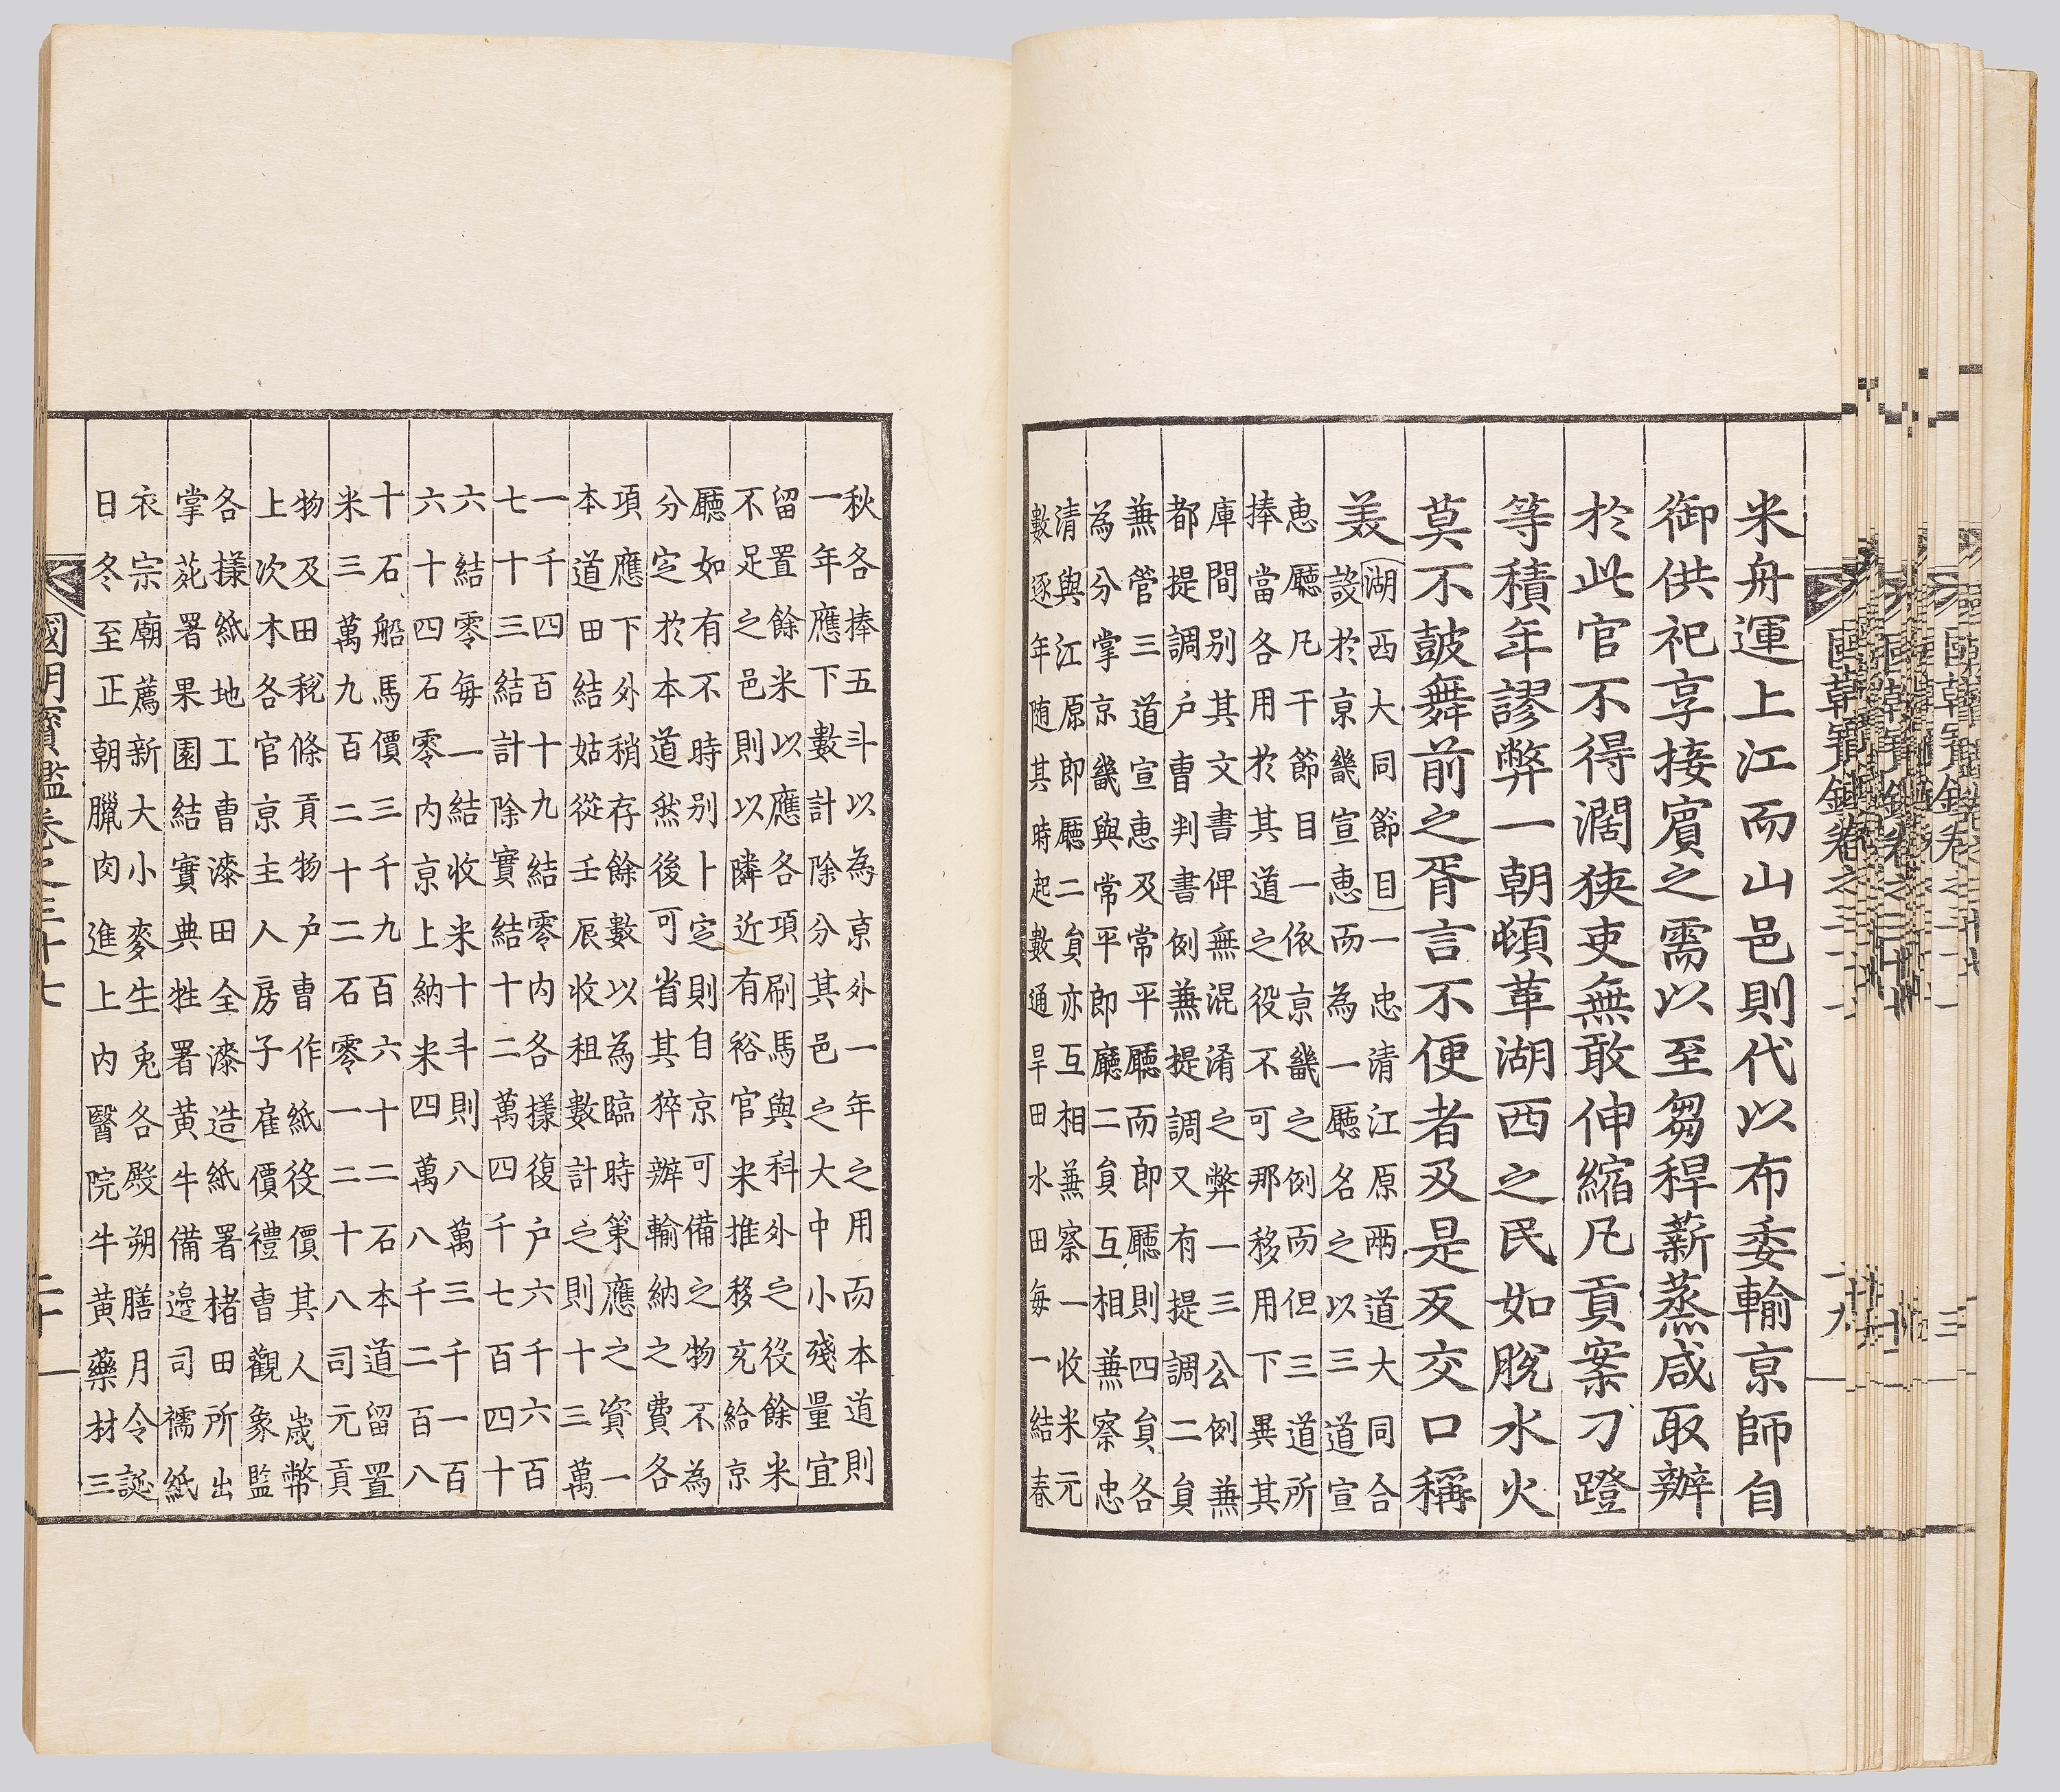 米舟運上江而山邑則代以布委輸京師自
御供祀享接賓之需以至芻稈薪蒸咸取辦
於此官不得濶狹吏無敢伸縮凡貢案刁蹬
等積年謬弊一朝頓革湖西之民如脫水火
莫不皷舞前之胥言不便者及是反交口稱
美
湖西大同節目一忠清江原兩道大同合
設於京畿宣惠而為一廳名之以三道宣
惠廳凡干節目一依京畿之例而但三道所
捧當各用於其道之役不可那移用下異其
庫間别其文書俾無混淆之弊一三公例兼
都提調户曹判書例兼提調又有提調二員
兼管三道宣惠及常平廳而即廳則四員各
為分掌京畿與常平郎廳二員互相兼察忠
清與江原郎廳二員亦互相兼察一收米元
數逐年随其時起數通旱田水田每一結春
秋各捧五斗以為京外一年之用而本道則
一年應下數計除分其邑之大中小殘量宜
留置餘米以應各項刷馬與科外之役餘米
不足之邑則以隣近有裕官米推移充給京
廳如有不時别卜定則自京可備之物不為
分定於本道然後可省其猝辦輸納之費各
項應下外稍存餘數以為臨時策應之資一
本道田結姑從壬辰收租數計之則十三萬
一千四百十九結零内各樣復户六千六百
七十三結計除實結十二萬四千七百四十
六結零每一結收米十斗則八萬三千一百
六十四石零内京上納米四萬八千二百八
十石船馬價三千九百六十二石本道留置
米三萬九百二十二石零一二十八司元貢
物及田稅條貢物户曹作紙役價其人歲幣
上次木各官京主人房子雇價禮曹觀象監
各樣紙地工曹漆田全漆造紙署楮田所出
掌苑署果園結實典牲署黄牛備邊司襦紙
衣宗廟薦新大小麥生兎各殿朔膳月令誕
日冬至正朝臘肉進上内醫院牛黄藥材三
國朝寶鑑卷之三十七
二十一